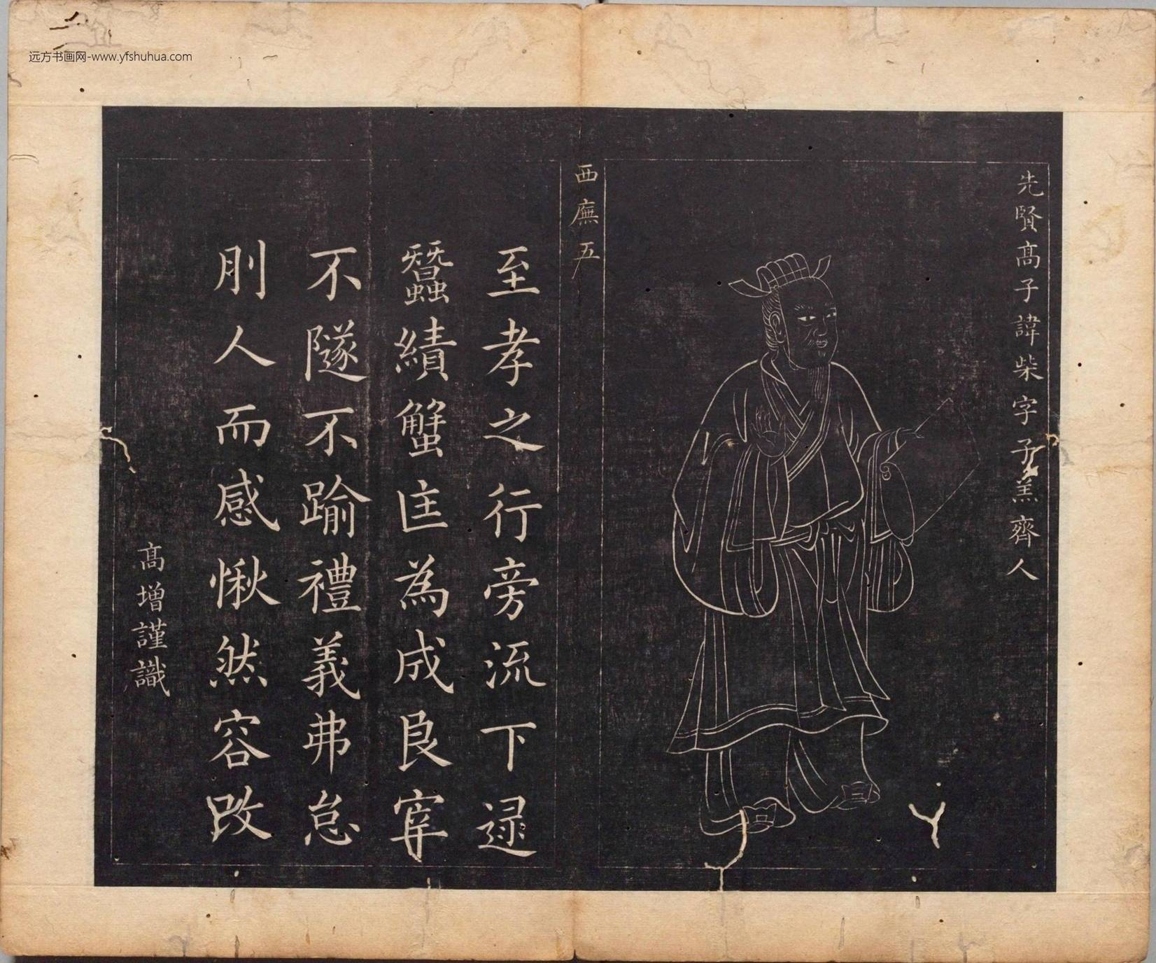 远方书画网-www.yfshuhua.com
先賢髙子諱柴字子羔齊人
西廡五
至孝之行旁流下逯
蠶績蟹匡為成良宰
不隧不踰禮義弗怠
刖人而感愀然容改
髙增謹識